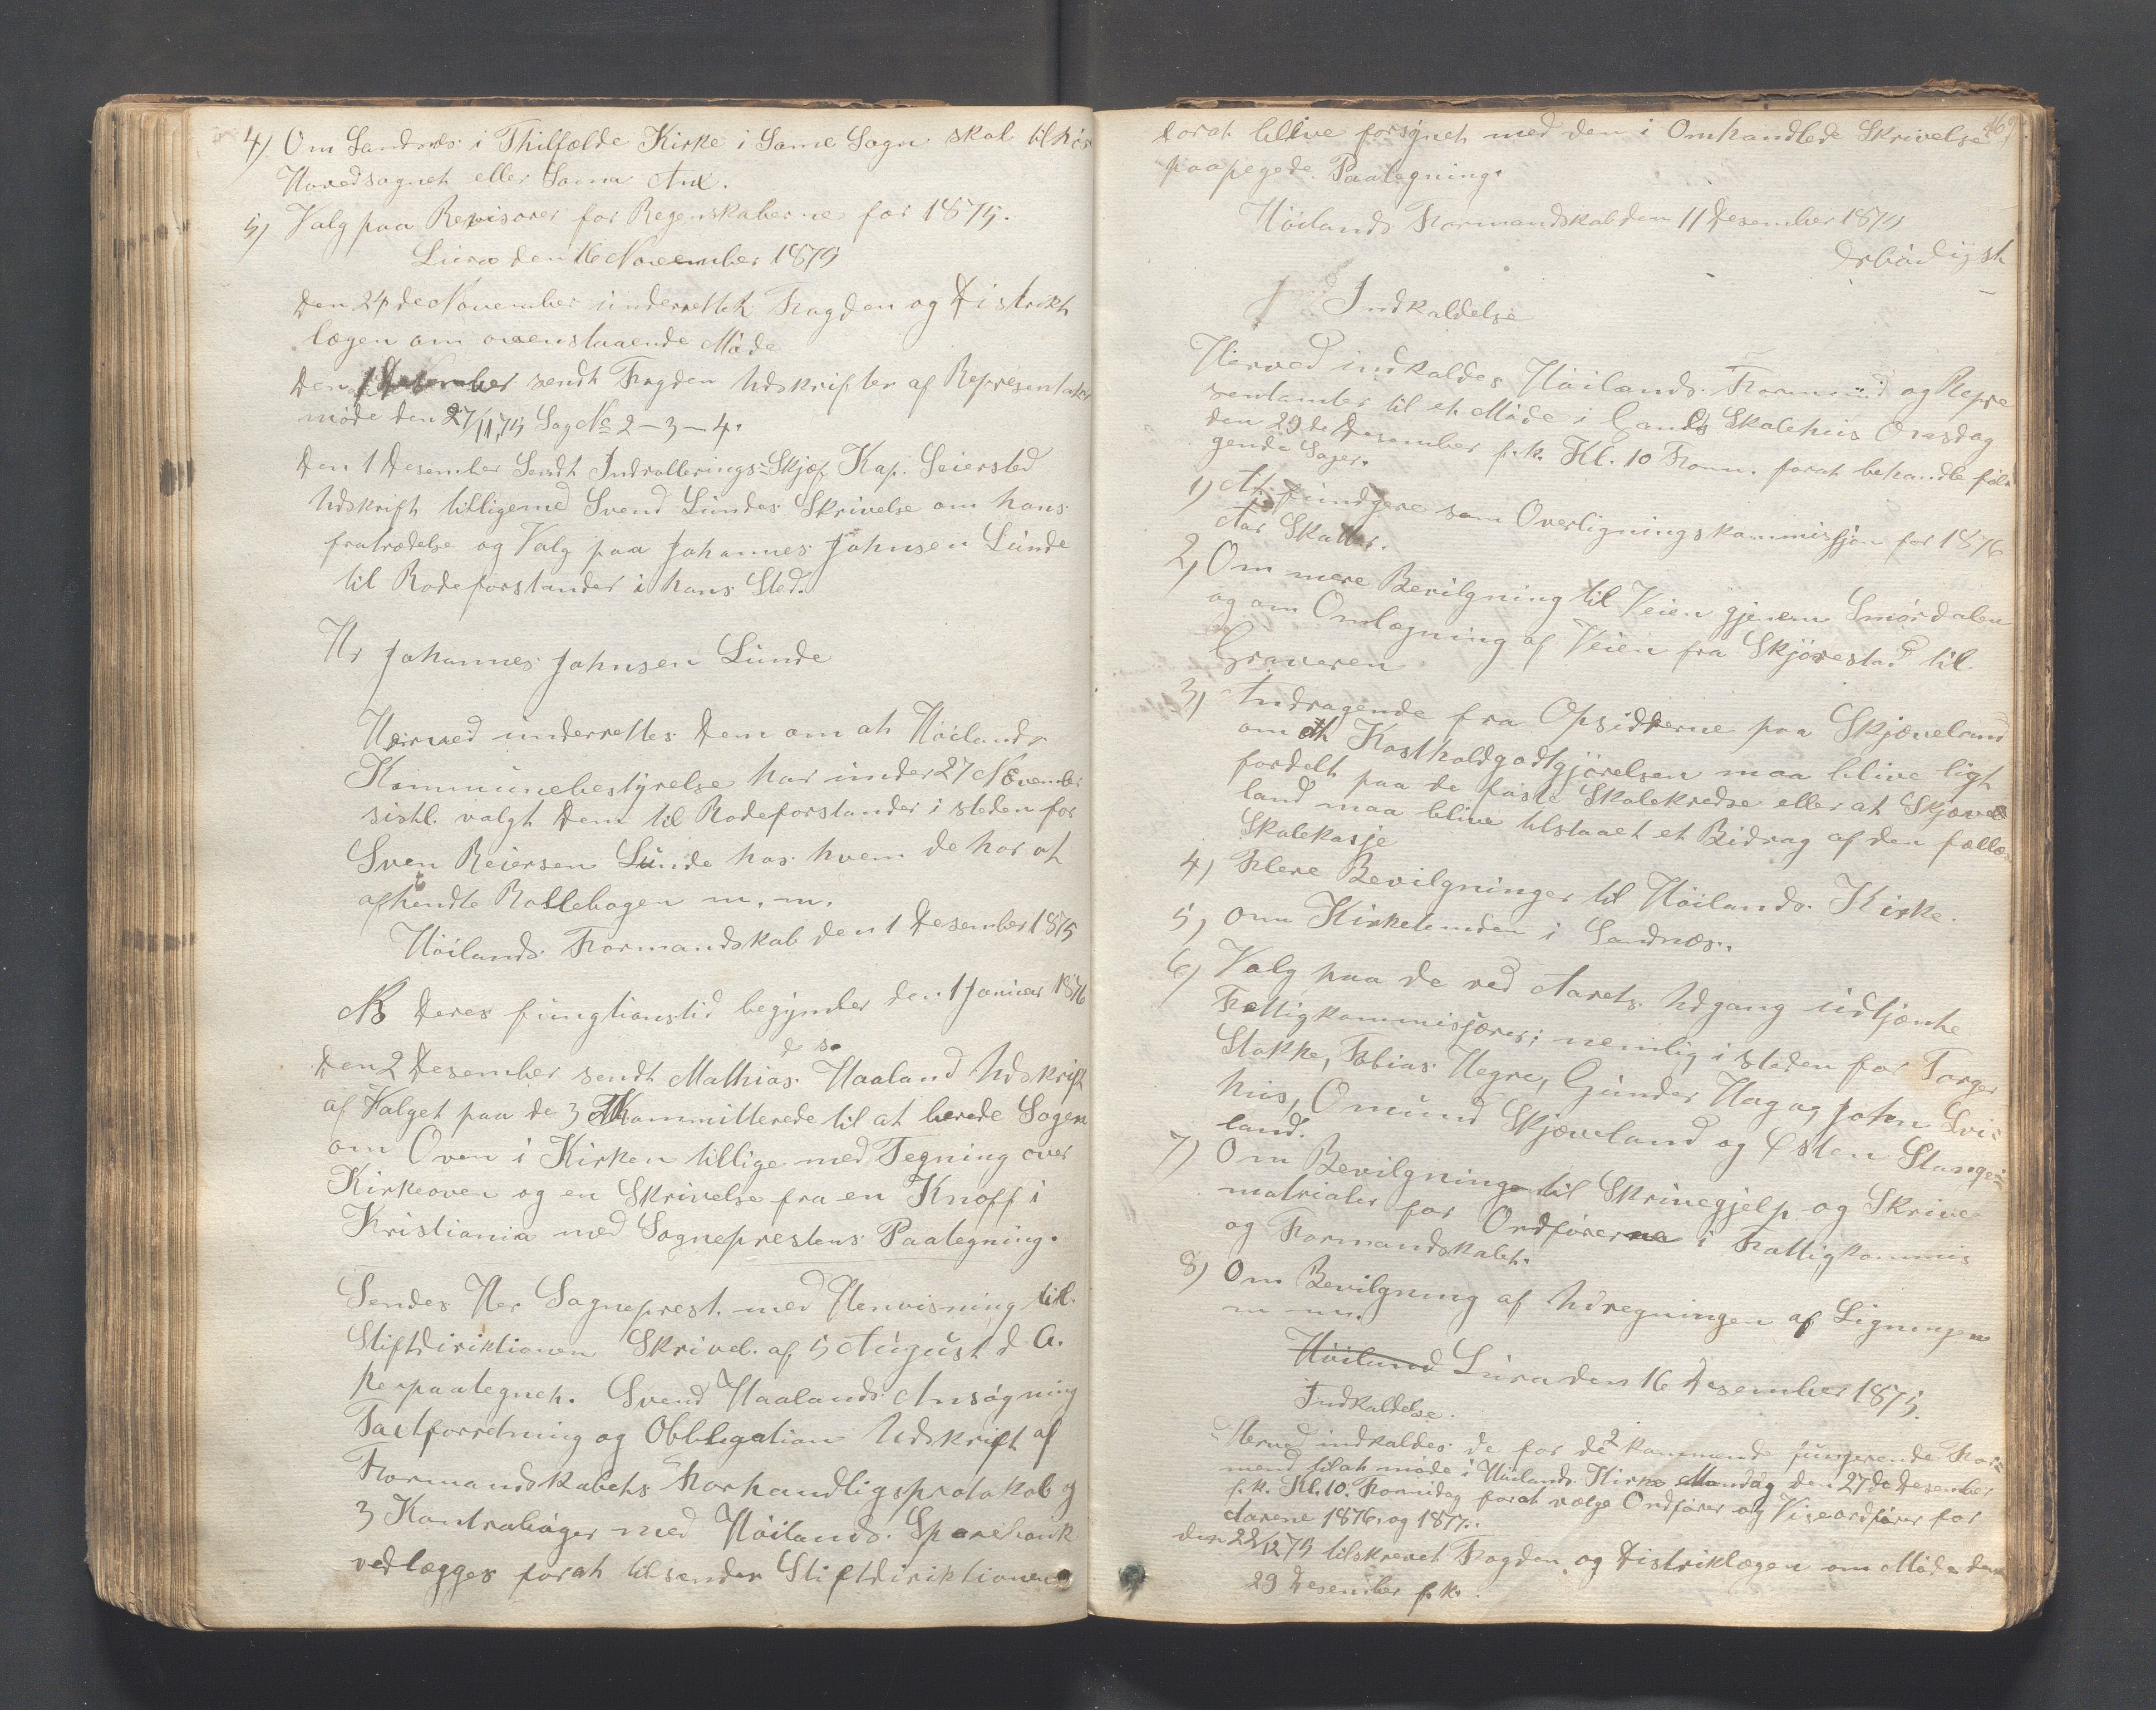 4) Om Sandnæs i Thilfælde Kirke i Same Sogn skal tilhør
Hovedsognet eller Soma Anx.
5) Valg paa Revisorer for Regenskaberne for 1875.
Lura den 16 November 1875
Den 24de November underrettet Fogden og Distrikt
lægen om ovenstaaende Møde
Den 1 Desember sendt Fogden Udskrifter af Representanter
møde den 27/11,75 Sag No 2-3-4.
Den 1 Desember Sendt Indrollerings-Skjef Kap. Seiersted
Udskrift tilligemed Svend Lundes Skrivelse om hans
fratrædelse og Valg paa Johannes Johnsen Lunde
til Rodeforstander i hans Sted.
Hr Johannes Johnsen Lunde
Herved underrettes Dem om at Höilands
Kommunebestyrelse har under 27 November
sistl. valgt Dem til Rodeforstander i steden for
Sven Reiersen Lunde hos hvem de har at
afhendte Rollebogen m. m.
Höilands Formandskab den 1 Desember 1875
NB Deres fungtionstid begynder den 1 Januar 1876
d so
Den 2 Desember sendt Mathias Haaland Udskrift
af Valget paa de 3 Kommitterede til at berede Sagen
om Oven i Kirken tillige med Tegning over
Kirkeoven og en Skrivelse fra en Knoff i
Kristiania med Sogneprestens Paategning.
Sendes Her Sogneprest med Henvisning til
Stiftdiriktionen Skrivel. af 5 August d A.
herpaategnet. Svend Haalands Ansøgning
Taxtforretning og Obbligation Udskrift af
Formandskabets Forhandligsprotokol og
3 Kontrabøger med Höilands Sparebank
vedlægges forat tilsender Stiftdiriktionen
169
forat blive forsynet med den i Omhandlede Skrivelse
paapegede Paategning.
Höilands Formandskab den 11 Desember 1875
Ærbödigst
Indkaldelse
Herved indkaldes Höilands Formænd og Repre
sentanter til et Møde i Gands Skolehus Onsdag
den 29de Desember f.k. Kl. 10 Form. forat behandle føl
gende Sager.
1) At fundgere som Overligningskommissjon for 1876
Aar Skatter.
2) Om mere Bevilgning til Veien gjenem Smørdalen
og om Omlægning af Veien fra Skjørestad til
Graveren
3) Andragende fra Opsidderne paa Skjæveland
om at Kostholdgodtgjörelsen maa blive ligt
fordelt paa de faste Skolekredse eller at Skjæve
land maa blive tilstaaet et Bidrag af den fælles
Skolekasje
4) Flere Bevilgninger til Höilands Kirke.
5) Om Kirketomden i Sandnæs.
6) Valg paa de ved Aarets Udgang udtjænte
Fattigkommisjærer; nemlig i steden for Torger
Stokke, Tobias Hegre, Gunder Hog og John Svi-
hus, Omund Skjæveland og Østen Stange-
land.
7) Om Bevilgning til Skrivegjelp og Skrive
matrialer for Ordförerne i Fattigkommis
og Formandskabet.
8) Om Bevilgning af Udregningen af Ligningen
m m.
Höiland Lura den 16 Desember 1875.
Indkaldelse.
Herved indkaldes de for de 2 kommende fungerende For-
mend til at møde i Höilands Kirke Mandag den 27de Desember
f.k. Kl. 10. Formidag forat vælge Ordförer og Viseordförer for
Aarene 1876 og 1877.
den 22/12 75 tilskrevet Fogden og Distriklægen om Møde den
29 Desember f.k.